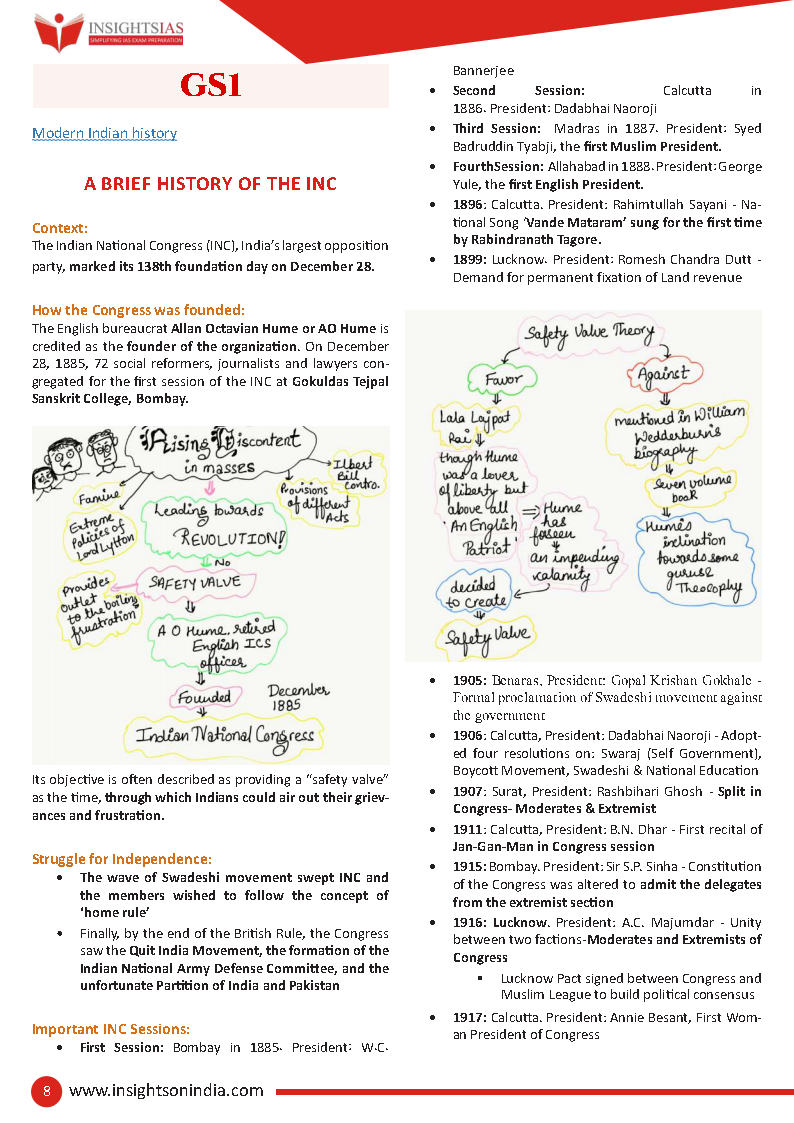 INSIGHTSIAS
SIMPLIFYING IAS EXAM PREPARATION
GS1
Modern Indian history
A BRIEF HISTORY OF THE INC
Context:
The Indian National Congress (INC), India's largest opposition
party, marked its 138th foundation day on December 28.
How the Congress was founded:
The English bureaucrat Allan Octavian Hume or AO Hume is
credited as the founder of the organization. On December
28, 1885, 72 social reformers, journalists and lawyers con-
gregated for the first session of the INC at Gokuldas Tejpal
Sanskrit College, Bombay.
Rising Discontent
in masses
Ilbert
Bill
contro.
Famine
Provisions
of different
Acts
Extreme
Policies of
Lord Lytton
Leading towards
REVOLUTION!
No
SAFETY VALVE
Provides
outlet
to the boiling
frustration
A O Hume, retired
English ICS
officer
Founded
December
1885
Indian National Congress
Its objective is often described as providing a “safety valve”
as the time, through which Indians could air out their griev-
ances and frustration.
Struggle for Independence:
• The wave of Swadeshi movement swept INC and
the members wished to follow the concept of
‘home rule’
• Finally, by the end of the British Rule, the Congress
saw the Quit India Movement, the formation of the
Indian National Army Defense Committee, and the
unfortunate Partition of India and Pakistan
Important INC Sessions:
• First Session: Bombay in 1885. President: W.C.
Bannerjee
• Second Session: Calcutta in
1886. President: Dadabhai Naoroji
• Third Session: Madras in 1887. President: Syed
Badruddin Tyabji, the first Muslim President.
• FourthSession: Allahabad in 1888. President: George
Yule, the first English President.
• 1896: Calcutta. President: Rahimtullah Sayani - Na-
tional Song ‘Vande Mataram’ sung for the first time
by Rabindranath Tagore.
• 1899: Lucknow. President: Romesh Chandra Dutt -
Demand for permanent fixation of Land revenue
Safety Valve Theory
Favor
Against
Lala Lajpat
Rai
though Hume
was a lover
of liberty but
above all
'An English
Patriot'
Hume
has
forseen
an impending
calamity
decided
to create
Safety Valve
mentioned in William
Wedderburn's
biography
Seven volume
book
Hume's
inclination
towards some
gurus &
Theosophy
• 1905: Benaras. President: Gopal Krishan Gokhale -
Formal proclamation of Swadeshi movement against
the government
• 1906: Calcutta, President: Dadabhai Naoroji - Adopt-
ed four resolutions on: Swaraj (Self Government),
Boycott Movement, Swadeshi & National Education
• 1907: Surat, President: Rashbihari Ghosh - Split in
Congress- Moderates & Extremist
• 1911: Calcutta, President: B.N. Dhar - First recital of
Jan-Gan-Man in Congress session
• 1915: Bombay. President: Sir S.P. Sinha - Constitution
of the Congress was altered to admit the delegates
from the extremist section
• 1916: Lucknow. President: A.C. Majumdar - Unity
between two factions-Moderates and Extremists of
Congress
▪ Lucknow Pact signed between Congress and
Muslim League to build political consensus
• 1917: Calcutta. President: Annie Besant, First Wom-
an President of Congress
8 www.insightsonindia.com